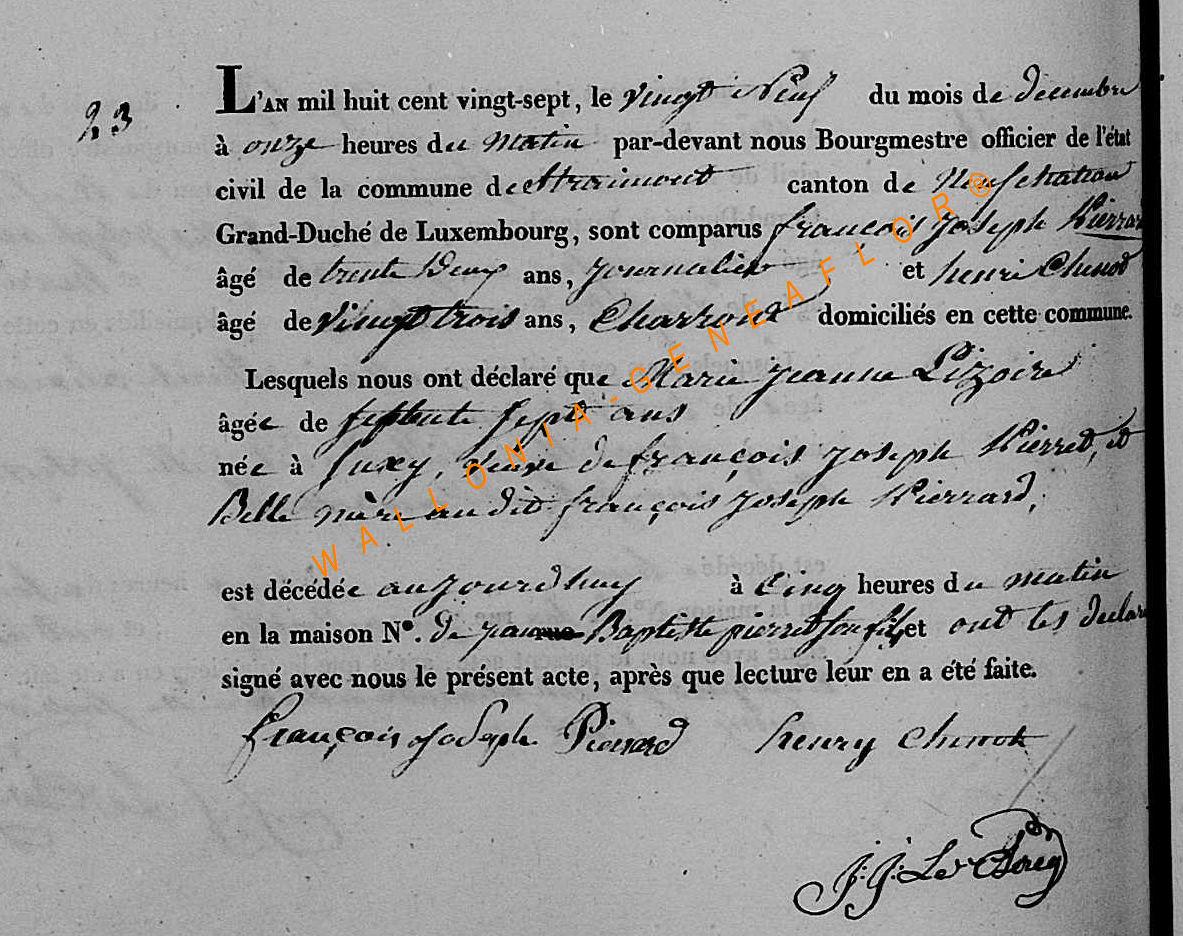 23
L'AN mil huit cent vingt-sept, le vingt Neuf du mois de decembre
à onze heures du matin par-devant nous Bourgmestre officier de l'état
civil de la commune de Straimont canton de Neufchateau
Grand-Duché de Luxembourg, sont comparus françois joseph Pierrard
âgé de trente deux ans, journalier et henri Chenot
âgé de vingt trois ans, Charron domiciliés en cette commune.
Lesquels nous ont déclaré que Marie jeanne Lizoire
âgée de septente sept ans
née à Juxy, veuve de françois joseph Pierret, et
Belle mère au dit françois joseph Pierrard,
est décédée aujourdhuy à Cinq heures du matin
en la maison N°. de jean Baptiste pierret son fils, et ont les declarans
signé avec nous le présent acte, après que lecture leur en a été faite.
françois joseph Pierrard henry chenot
J: J: Le
WALLONIA-GENEAFLOR®